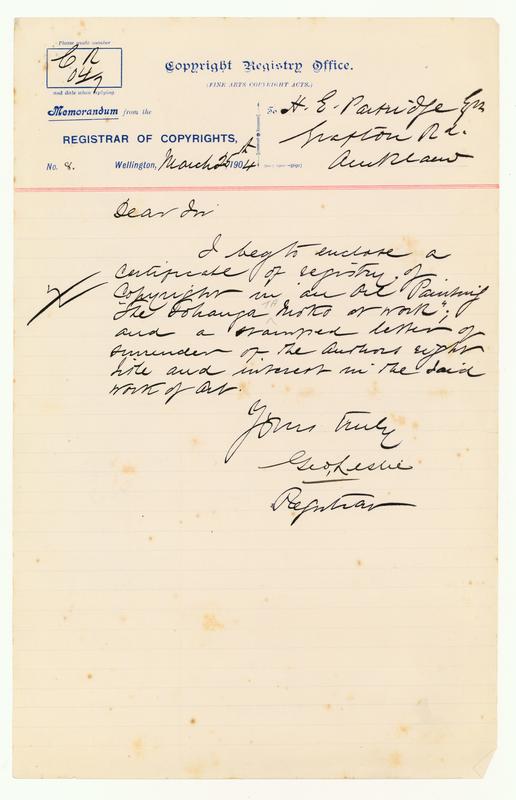 Please quote number
C R
04/7
and date when replying.
Copyright Registry Office.
(FINE ARTS COPYRIGHT ACTS.)
Memorandum from the
REGISTRAR OF COPYRIGHTS,
No. 8. Wellington, March 25th 1904
To H. E. Partridge Esq
Grafton Rd.
Auckland
Dear Sir
I beg to enclose a
certificate of registry of
Copyright in an Oil Painting
"The Tohunga Moko at work";
and a stamped letter of
surrender of the Authors right
title and interest in the said
work of Art.
Yours truly
Geo. Leslie
Registrar